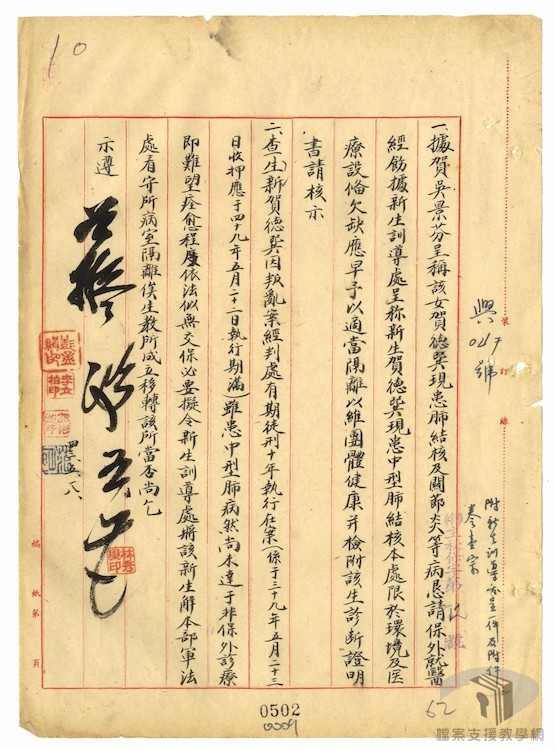 10
一、據賀吳景芬呈稱該女賀德巽現患肺結核及關節炎等病恳請保外就醫
經飭據新生訓導處呈稱新生賀德巽現患中型肺結核本處限於環境及医
療設俻欠缺應早予以適當隔離以維團體健康并檢附該生診斷證明
書請核示
二、查(生)新賀德巽因叛亂案經判處有期徒刑十年執行在案(係于三十九年五月二十三
日收押應于四十九年五月二十二日執行期滿)雖患中型肺病然尚未達于非保外診療
即難望痊愈程度依法似無交保必要擬令新生訓導處將該新生解本部軍法
處看守所病室隔離俟生教所成立移轉該所當否尚乞
示遵
裝
訂
線
號
附新生訓導處呈一件及附件
卷壹宗
稿 紙 第 頁
0502
0009
62
檔案支援教學網